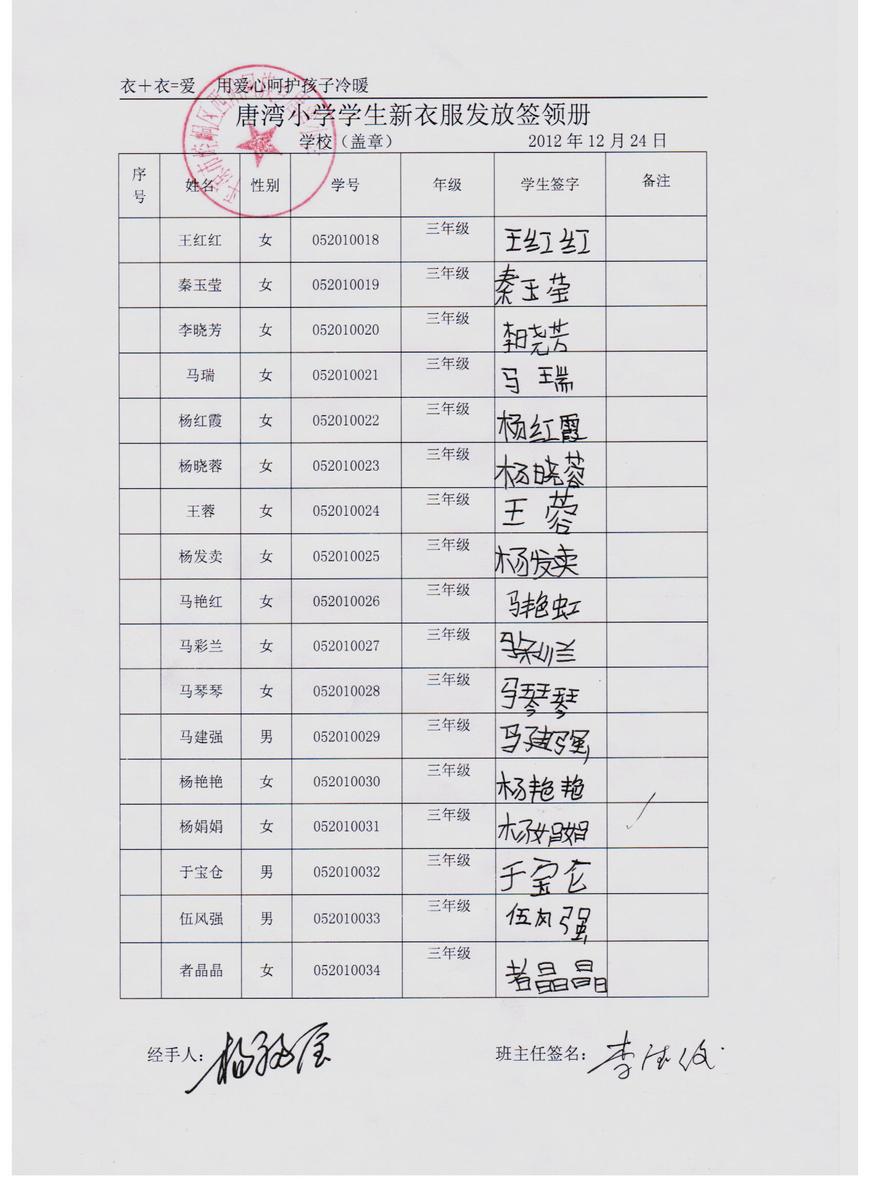 衣＋衣=爱 用爱心呵护孩子冷暖
唐湾小学学生新衣服发放签领册
学校（盖章） 2012 年 12 月 24 日
序号 姓名 性别 学号 年级 学生签字 备注
王红红 女 052010018 三年级 王红红
秦玉莹 女 052010019 三年级 秦玉莹
李晓芳 女 052010020 三年级 李晓芳
马瑞 女 052010021 三年级 马瑞
杨红霞 女 052010022 三年级 杨红霞
杨晓蓉 女 052010023 三年级 杨晓蓉
王蓉 女 052010024 三年级 王蓉
杨发卖 女 052010025 三年级 杨发卖
马艳红 女 052010026 三年级 马艳虹
马彩兰 女 052010027 三年级 马彩兰
马琴琴 女 052010028 三年级 马琴琴
马建强 男 052010029 三年级 马建强
杨艳艳 女 052010030 三年级 杨艳艳
杨娟娟 女 052010031 三年级 杨娟娟
于宝仓 男 052010032 三年级 于宝仓
伍风强 男 052010033 三年级 伍风强
者晶晶 女 052010034 三年级 者晶晶
经手人： 班主任签名：